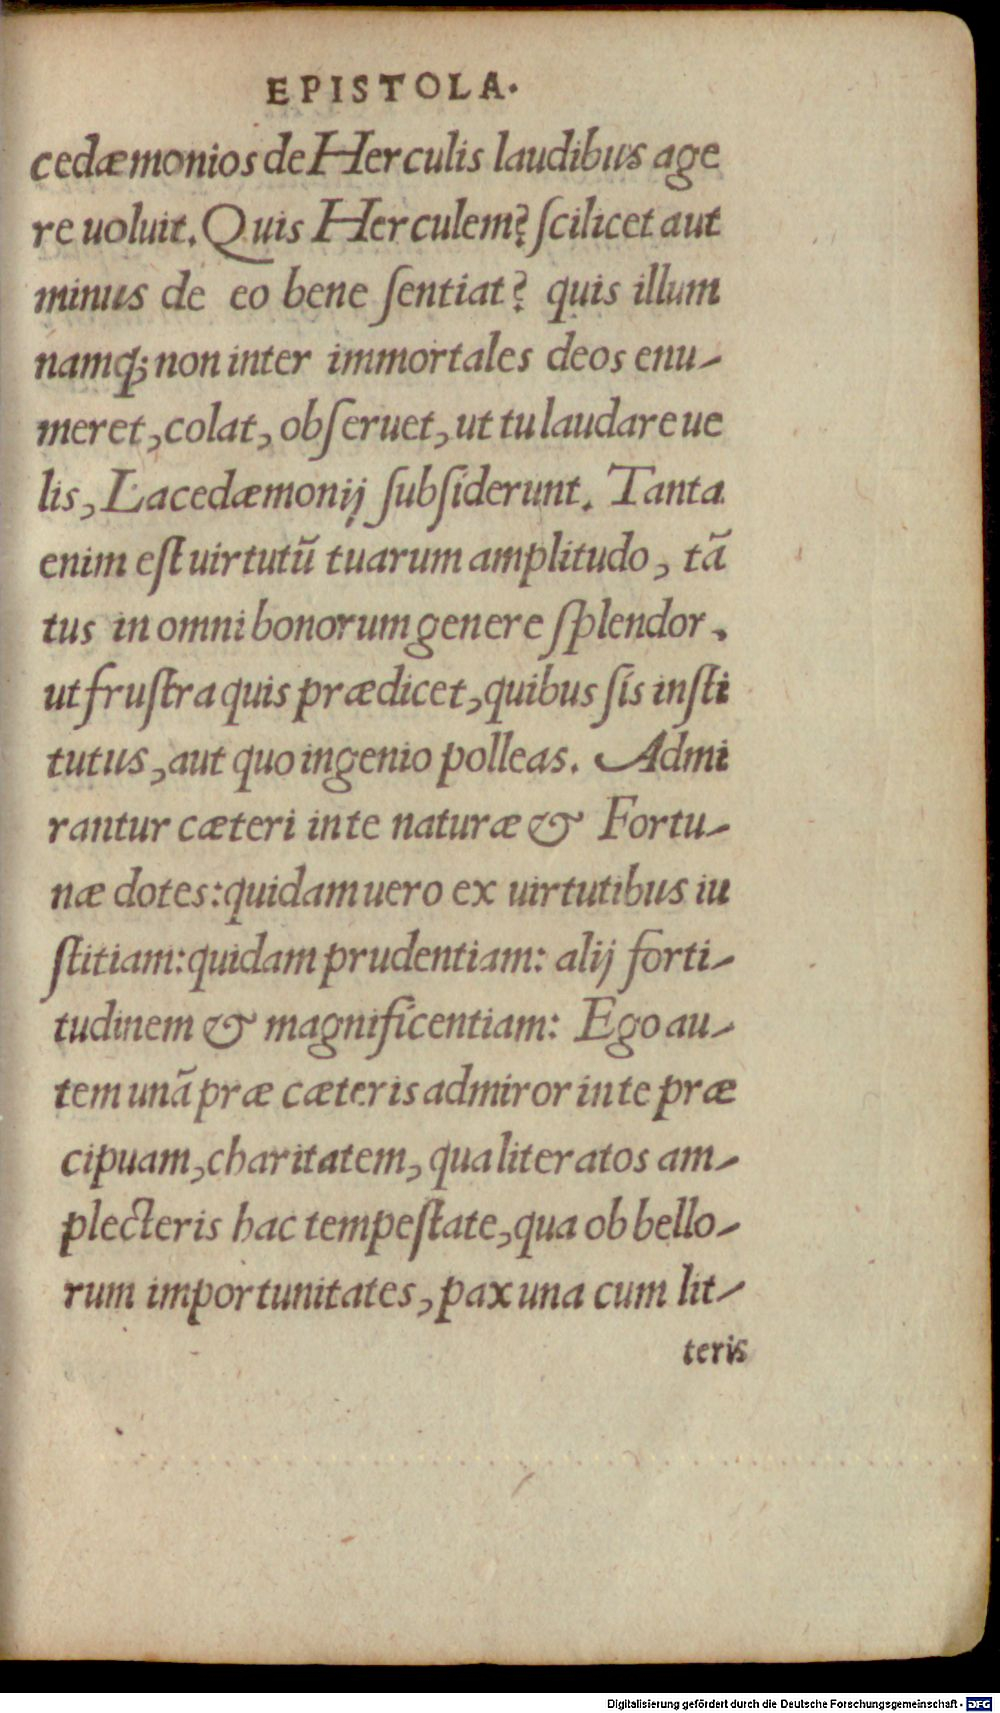 EPISTOLA.
cedæmonios de Herculis laudibus age
re uoluit. Quis Herculem? scilicet aut
minus de eo bene sentiat? quis illum
namq; non inter immortales deos enu-
meret, colat, obseruet, ut tu laudare ue
lis, Lacedæmonij subsiderunt. Tanta
enim est uirtutũ tuarum amplitudo, tã
tus in omni bonorum genere splendor.
ut frustra quis prædicet, quibus sis insti
tutus, aut quo ingenio polleas. Admi
rantur cæteri in te naturæ & Fortu-
næ dotes: quidam uero ex uirtutibus iu
stitiam: quidam prudentiam: alij forti-
tudinem & magnificentiam: Ego au-
tem unã præ cæteris admiror in te præ
cipuam, charitatem, qua literatos am-
plecteris hac tempestate, qua ob bello-
rum importunitates, pax una cum lit-
teris
Digitalisierung gefördert durch die Deutsche Forschungsgemeinschaft - DFG